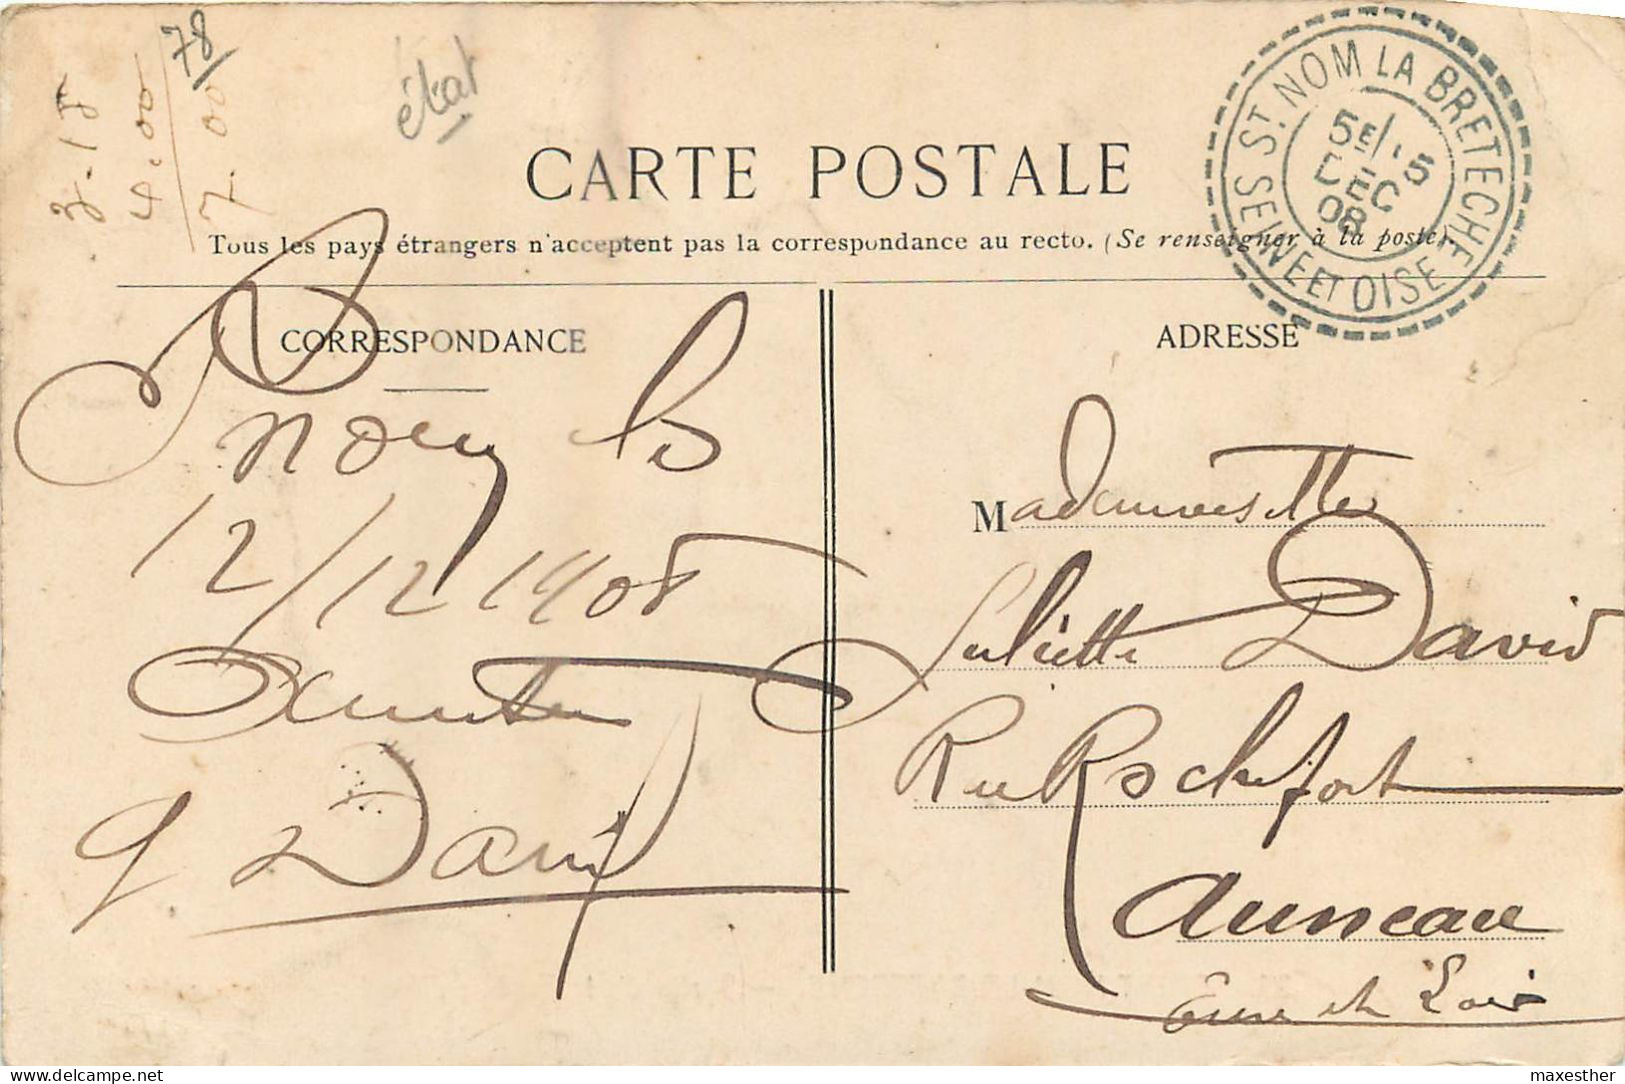 78
3-18
4.00
7.00
état
CARTE POSTALE
Tous les pays étrangers n'acceptent pas la correspondance au recto. (Se renseigner à la poste).
ST. NOM LA BRETECHE
5E/15
DEC
08
SEINE ET OISE
CORRESPONDANCE
ADRESSE
Noisy le
12/12 1908
David
Mademoiselle
Juliette David
Rue Rochefort
Auneau
Eure et Loir
DELCAMPE
maxesther